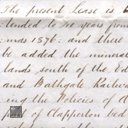 The present Lease is
tended to 30 years from
mas 1876. and there
be added the mineral
lands south of the Ed
and Bathgate Railway
ing the Policies of
of Clapperton bed